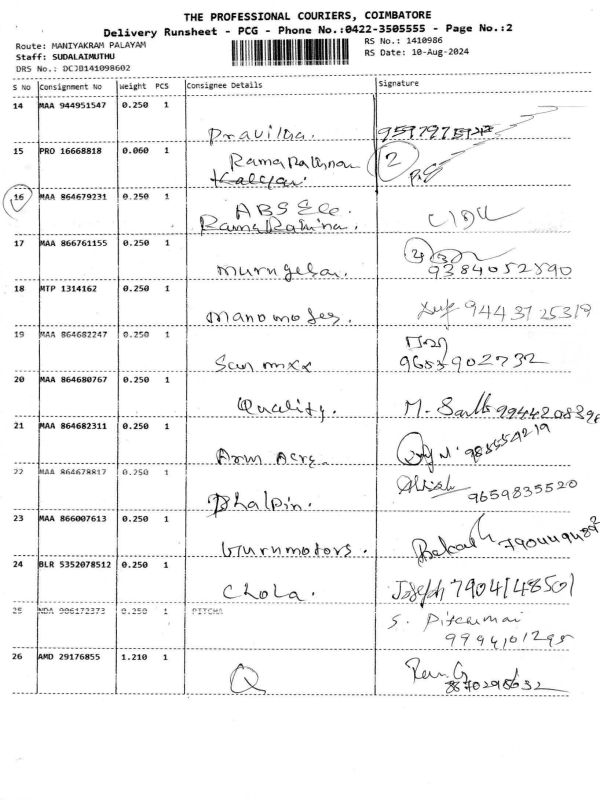 THE PROFESSIONAL COURIERS, COIMBATORE
Delivery Runsheet - PCG - Phone No.:0422-3505555 - Page No.:2
Route: MANIYAKRAM PALAYAM
RS No.: 1410986
Staff: SUDALAIMUTHU
RS Date: 10-Aug-2024
DRS No.: DCJB141098602
S No Consignment No Weight PCS Consignee Details Signature
14 MAA 944951547 0.250 1
15 PRO 16668818 0.060 1
2
16 MAA 864679231 0.250 1
ABS Ele.
17 MAA 866761155 0.250 1
murugesan.
9384052590
18 MTP 1314162 0.250 1
9443725319
19 MAA 864682247 0.250 1
San mxx
9659902732
20 MAA 864680767 0.250 1
Quality.
21 MAA 864682311 0.250 1
Arm Acre.
22 MAA 864678817 0.250 1
9659835520
23 MAA 866007613 0.250 1
Gurumotors.
24 BLR 5352078512 0.250 1
Chola.
Joseph 7904148501
25 NDA 906172373 0.250 1 PITCHA
S. Pitchumai
26 AMD 29176855 1.210 1
Q